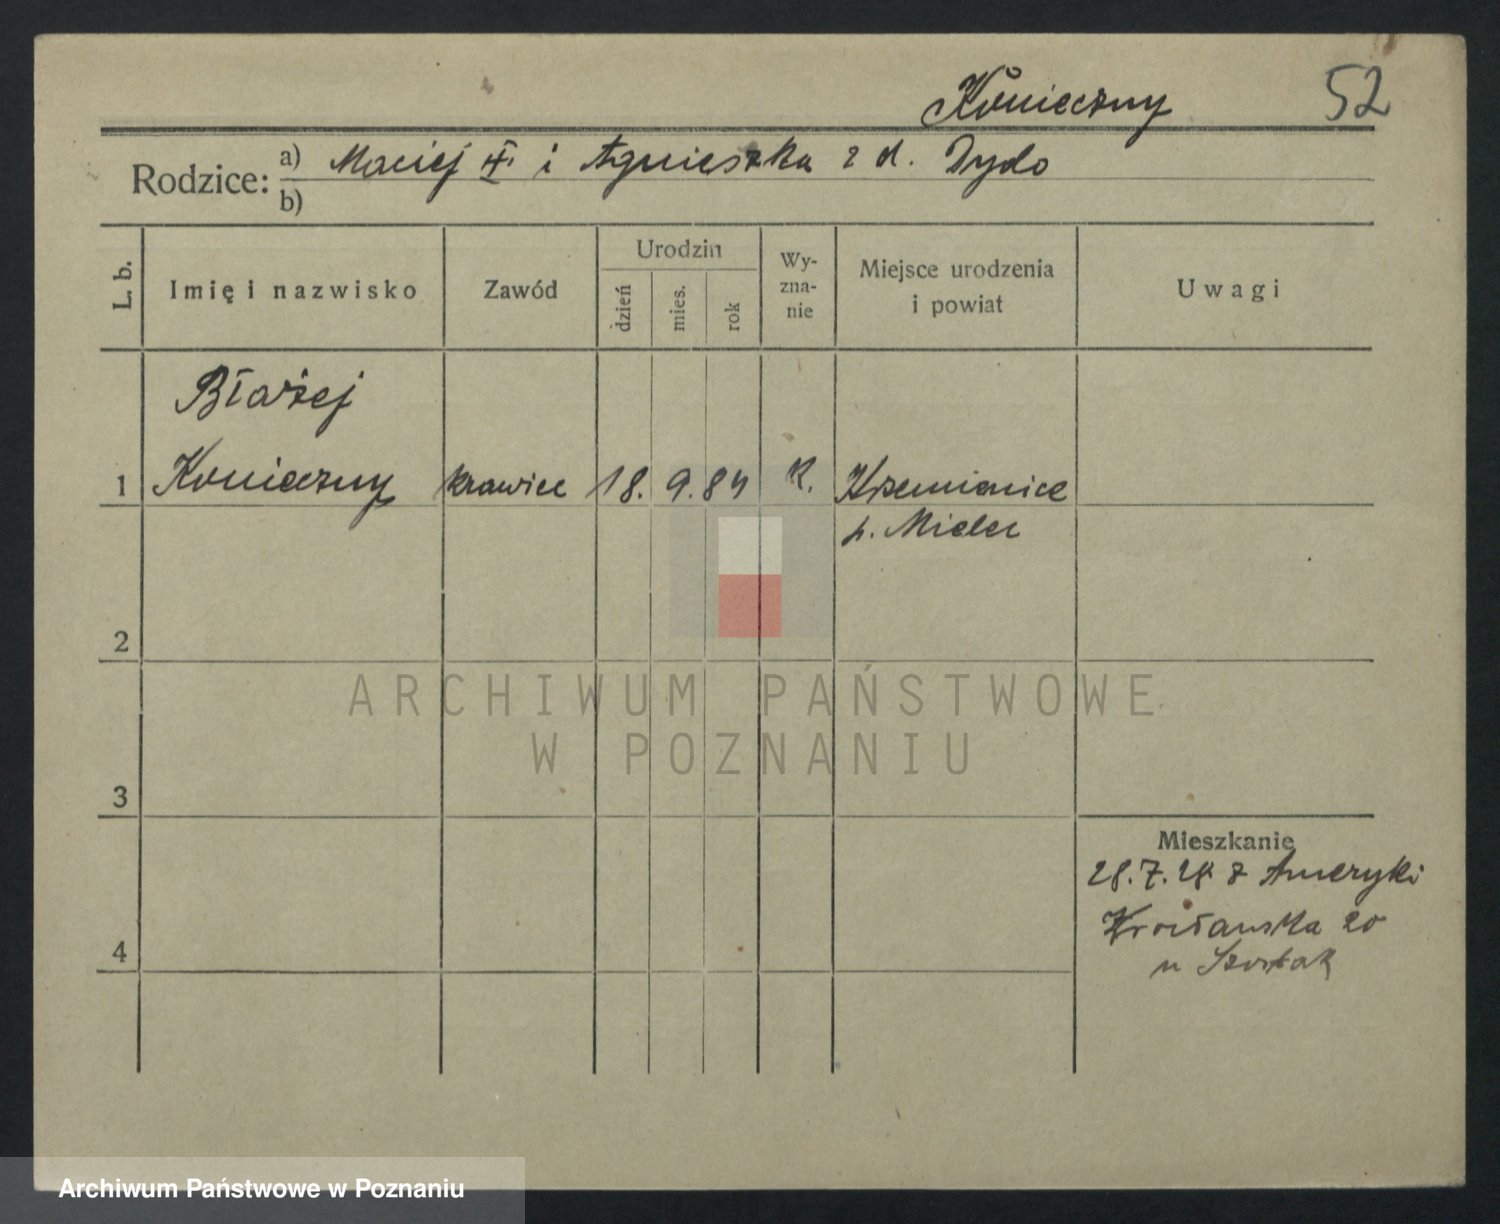 Konieczny 52
Rodzice: a) Maciej i Agnieszka z d. Dydo
b)
L. b. Imię i nazwisko Zawód Urodzin dzień mies. rok Wyznanie Miejsce urodzenia i powiat Uwagi
Błażej
1 Konieczny krawiec 18. 9. 84 K. Krzemienice
p. Mielec
2
ARCHIWUM PAŃSTWOWE
W POZNANIU
3
Mieszkanie
28.7.28 z Ameryki
4 20
u Szostak
Archiwum Państwowe w Poznaniu